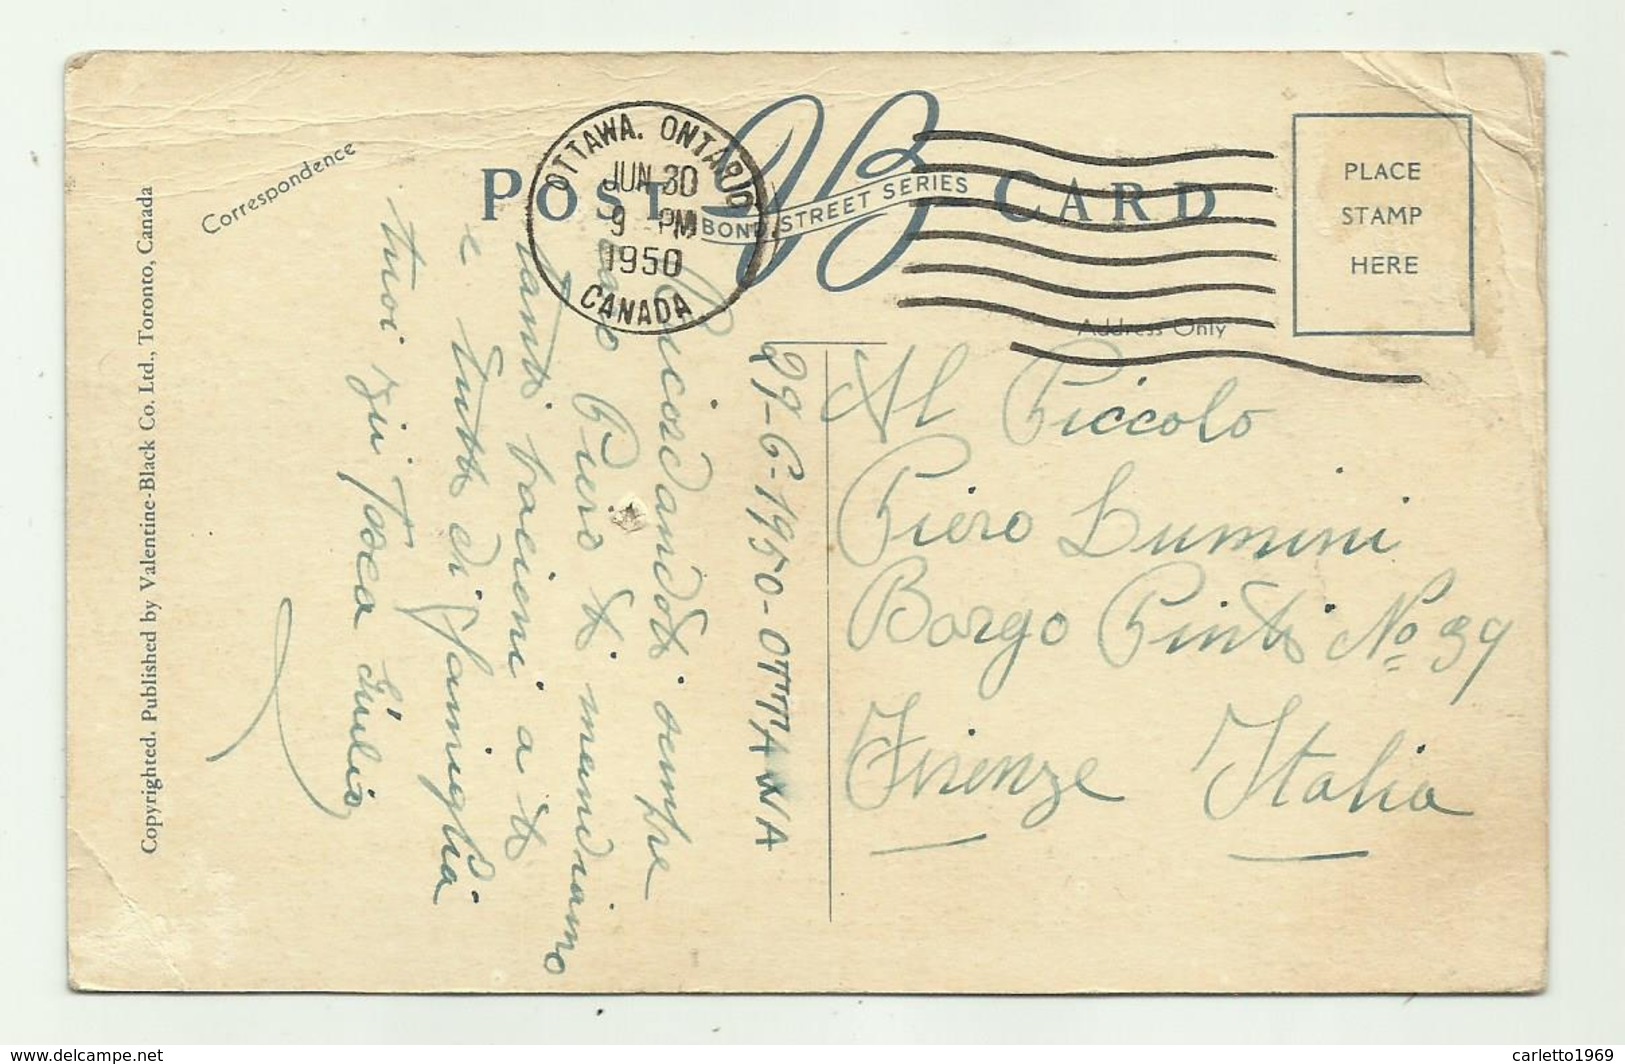 Copyrighted. Published by Valentine-Black Co. Ltd., Toronto, Canada
Correspondence
POST CARD
BOND STREET SERIES
OTTAWA. ONTARIO
JUN 30
9 PM
1950
CANADA
PLACE
STAMP
HERE
Address Only
29-6-1950-OTTAWA
Ricordandoti sempre
caro Piero ti mandiamo
tanti bacioni a te
e tutti di famiglia
tuoi zii Tosca Giulio
Al Piccolo
Piero Lumini
Borgo Pinti No 39
Firenze Italia
www.delcampe.net
carletto1969